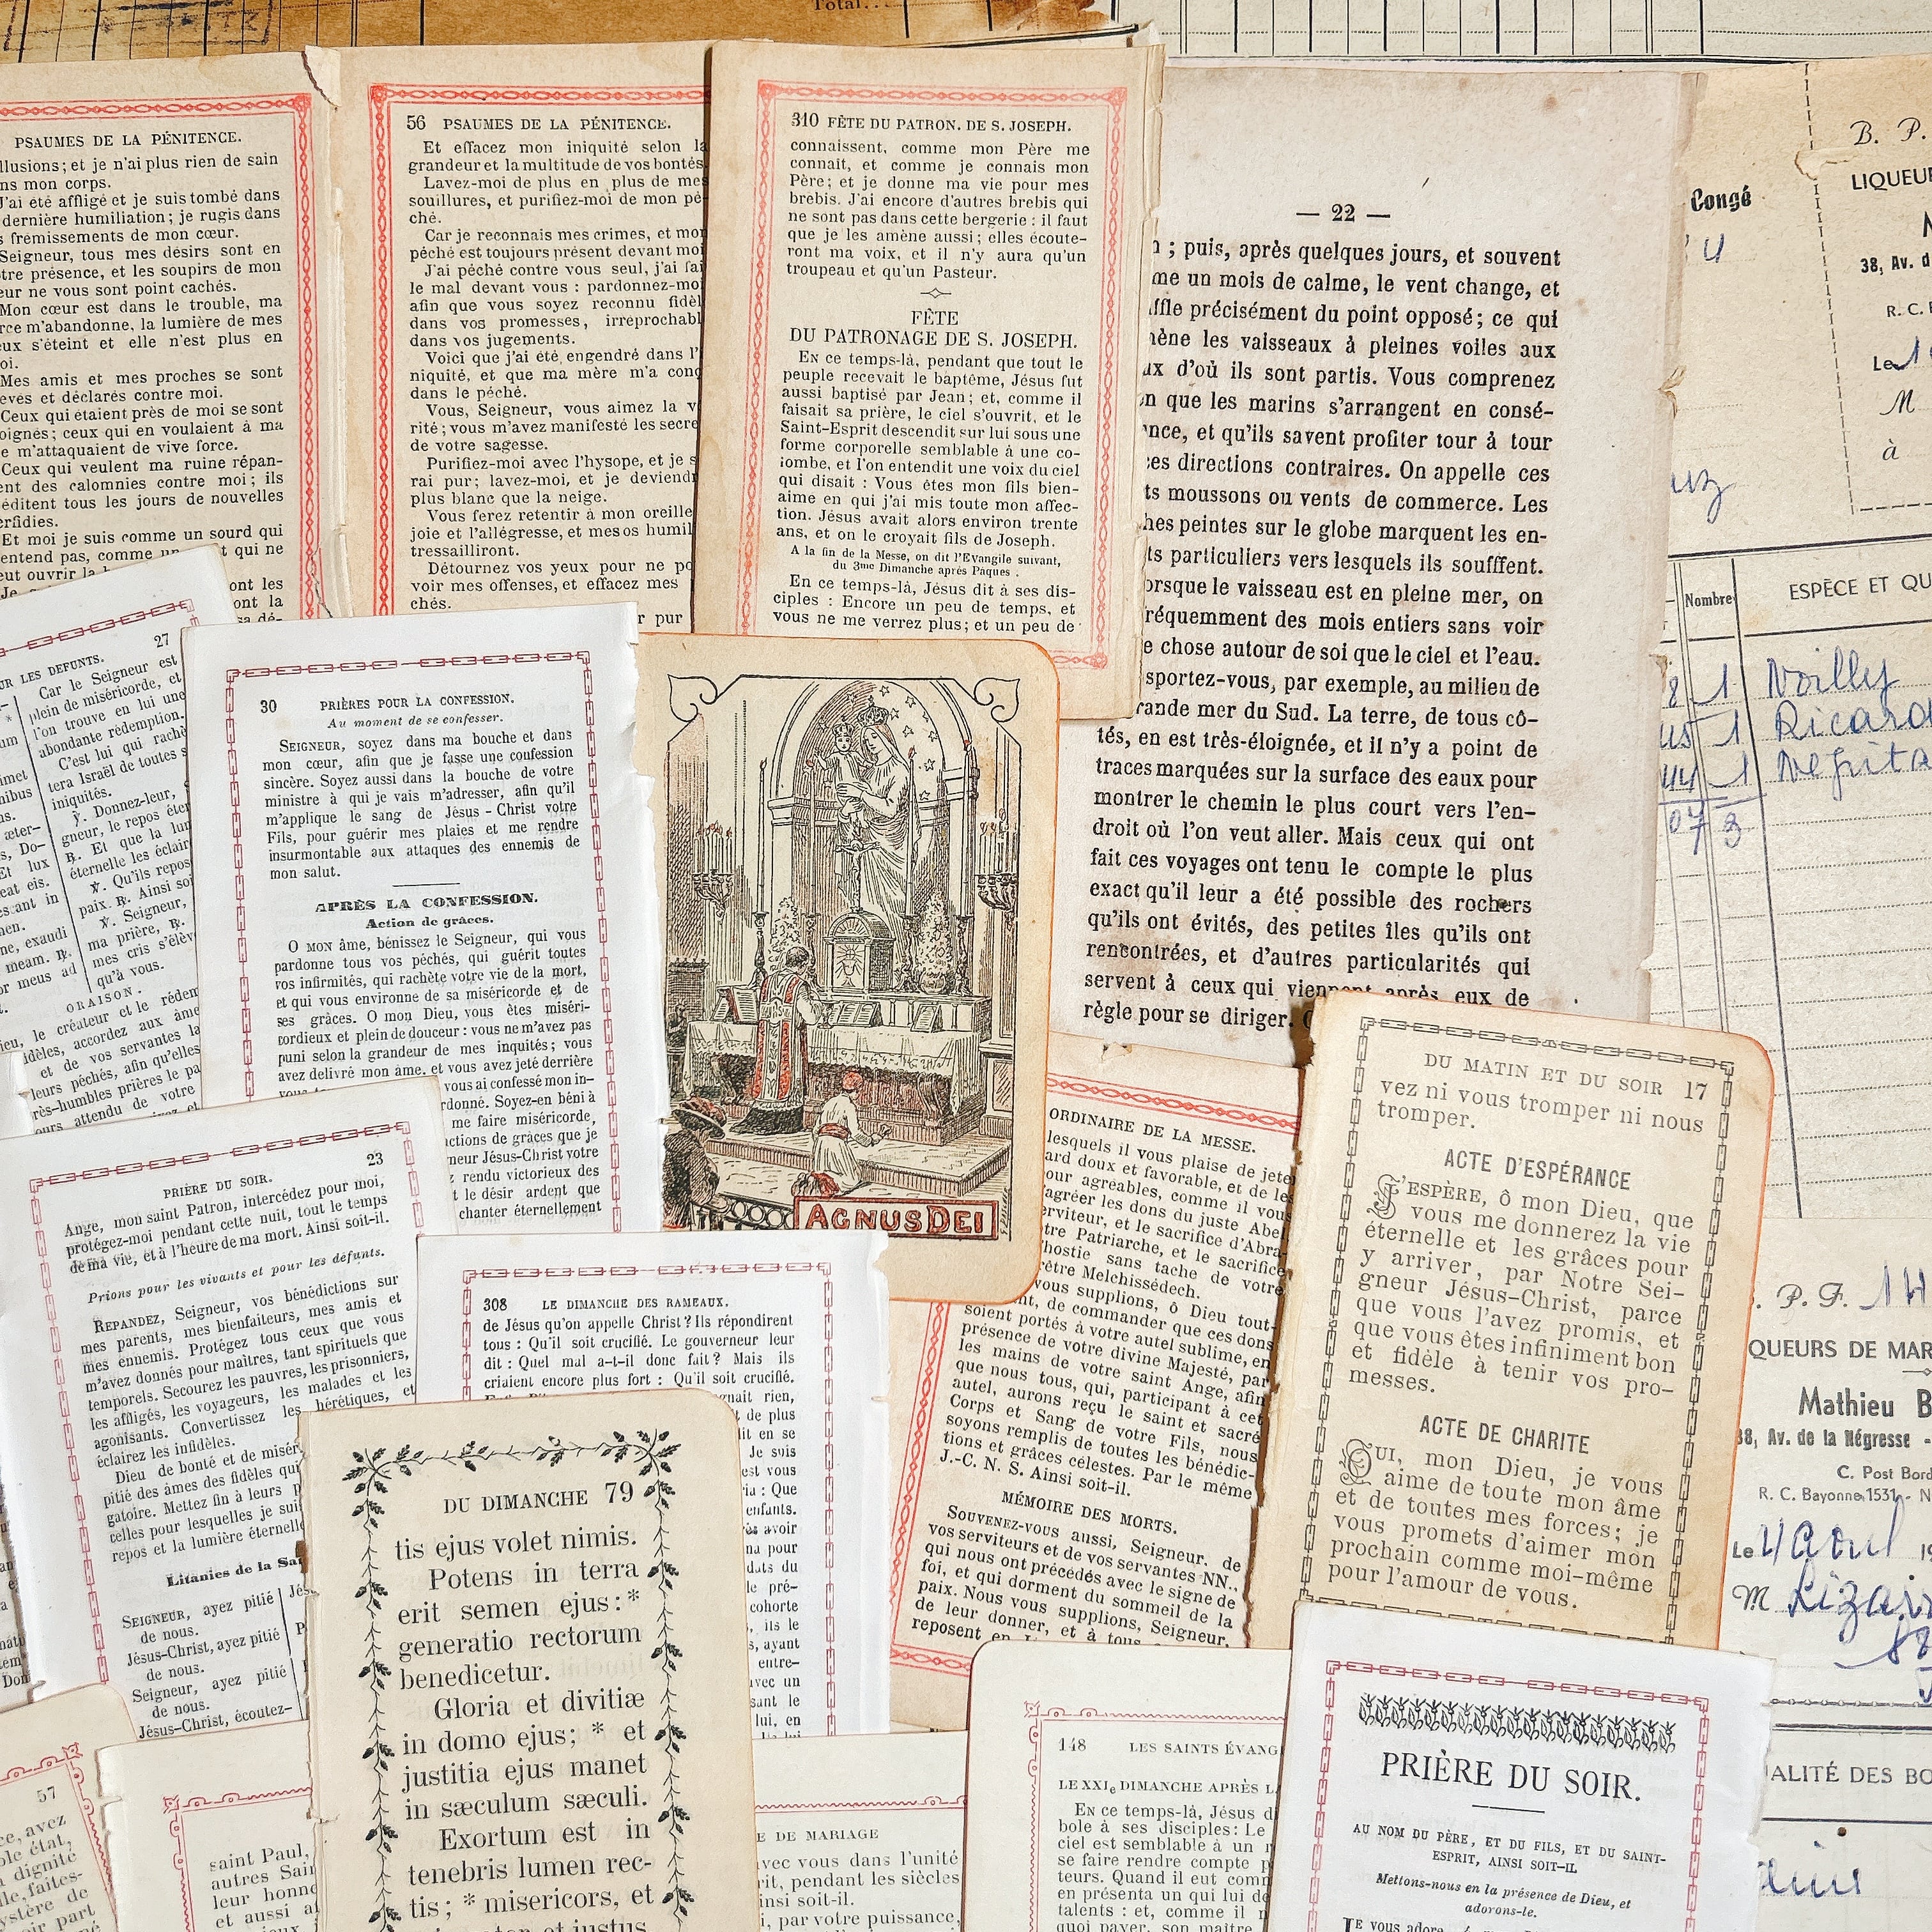 Total..
PSAUMES DE LA PÉNITENCE.
llusions; et je n'ai plus rien de sain
ns mon corps.
J'ai été affligé et je suis tombé dans
dernière humiliation; je rugis dans
s frémissements de mon cœur.
Seigneur, tous mes désirs sont en
tre présence, et les soupirs de mon
eur ne vous sont point cachés.
Mon cœur est dans le trouble, ma
rce m'abandonne, la lumière de mes
eux s'éteint et elle n'est plus en
oi.
Mes amis et mes proches se sont
evés et déclarés contre moi.
Ceux qui étaient près de moi se sont
oignés; ceux qui en voulaient à ma
e m'attaquaient de vive force.
Ceux qui veulent ma ruine répan-
ent des calomnies contre moi; ils
éditent tous les jours de nouvelles
erfidies.
Et moi je suis comme un sourd qui
entend pas, comme un t qui ne
eut ouvrir la
56 PSAUMES DE LA PÉNITENCE.
Et effacez mon iniquité selon la
grandeur et la multitude de vos bontés.
Lavez-moi de plus en plus de mes
souillures, et purifiez-moi de mon pé-
ché.
Car je reconnais mes crimes, et mon
péché est toujours présent devant moi
J'ai péché contre vous seul, j'ai fai
le mal devant vous : pardonnez-moi
afin que vous soyez reconnu fidèl
dans vos promesses, irréprochabl
dans vos jugements.
Voici que j'ai été engendré dans l'
niquité, et que ma mère m'a conç
dans le péché.
Vous, Seigneur, vous aimez la v
rité; vous m'avez manifesté les secre
de votre sagesse.
Purifiez-moi avec l'hysope, et je s
rai pur; lavez-moi, et je deviend
plus blanc que la neige.
Vous ferez retentir à mon oreille
joie et l'allégresse, et mes os humil
tressailliront.
Détournez vos yeux pour ne po
voir mes offenses, et effacez mes
chés.
r pur
310 FÊTE DU PATRON. DE S. JOSEPH.
connaissent, comme mon Père me
connaît, et comme je connais mon
Père; et je donne ma vie pour mes
brebis. J'ai encore d'autres brebis qui
ne sont pas dans cette bergerie : il faut
que je les amène aussi; elles écoute-
ront ma voix, et il n'y aura qu'un
troupeau et qu'un Pasteur.
FÊTE
DU PATRONAGE DE S. JOSEPH.
EN ce temps-là, pendant que tout le
peuple recevait le baptême, Jésus fut
aussi baptisé par Jean; et, comme il
faisait sa prière, le ciel s'ouvrit, et le
Saint-Esprit descendit sur lui sous une
forme corporelle semblable à une co-
lombe, et l'on entendit une voix du ciel
qui disait : Vous êtes mon fils bien-
aimé en qui j'ai mis toute mon affec-
tion. Jésus avait alors environ trente
ans, et on le croyait fils de Joseph.
A la fin de la Messe, on dit l'Evangile suivant,
du 3me Dimanche après Pâques.
En ce temps-là, Jésus dit à ses dis-
ciples : Encore un peu de temps, et
vous ne me verrez plus; et un peu de
— 22 —
n ; puis, après quelques jours, et souvent
me un mois de calme, le vent change, et
ffle précisément du point opposé; ce qui
mène les vaisseaux à pleines voiles aux
ux d'où ils sont partis. Vous comprenez
n que les marins s'arrangent en consé-
nce, et qu'ils savent profiter tour à tour
ces directions contraires. On appelle ces
ts moussons ou vents de commerce. Les
hes peintes sur le globe marquent les en-
ts particuliers vers lesquels ils soufflent.
orsque le vaisseau est en pleine mer, on
réquemment des mois entiers sans voir
e chose autour de soi que le ciel et l'eau.
sportez-vous, par exemple, au milieu de
rande mer du Sud. La terre, de tous cô-
tés, en est très-éloignée, et il n'y a point de
traces marquées sur la surface des eaux pour
montrer le chemin le plus court vers l'en-
droit où l'on veut aller. Mais ceux qui ont
fait ces voyages ont tenu le compte le plus
exact qu'il leur a été possible des rochers
qu'ils ont évités, des petites îles qu'ils ont
rencontrées, et d'autres particularités qui
servent à ceux qui viennent après eux de
règle pour se diriger.
Congé
B. P.
LIQUEU
38, Av. d
R. C.
Le
M
à
Nombre
ESPÈCE ET QU
8 1 Noilly
1 Ricard
1
3
UR LES DEFUNTS. 27
Car le Seigneur est
plein de miséricorde, et
l'on trouve en lui une
abondante rédemption.
C'est lui qui rachè
tera Israël de toutes s
iniquités.
℣. Donnez-leur,
gneur, le repos éter
℟. Et que la lum
éternelle les éclair
℣. Qu'ils repos
paix. ℟. Ainsi soi
℣. Seigneur,
ma prière, ℟.
mes cris s'élèv
qu'à vous.
ORAISON.
ieu, le créateur et le rédem
idèles, accordez aux âme
et de vos servantes la
leurs péchés, afin qu'elles
rès-humbles prières le pa
ours attendu de votre
30 PRIÈRES POUR LA CONFESSION.
Au moment de se confesser.
SEIGNEUR, soyez dans ma bouche et dans
mon cœur, afin que je fasse une confession
sincère. Soyez aussi dans la bouche de votre
ministre à qui je vais m'adresser, afin qu'il
m'applique le sang de Jésus-Christ votre
Fils, pour guérir mes plaies et me rendre
insurmontable aux attaques des ennemis de
mon salut.
APRÈS LA CONFESSION.
Action de grâces.
O MON âme, bénissez le Seigneur, qui vous
pardonne tous vos péchés, qui guérit toutes
vos infirmités, qui rachète votre vie de la mort,
et qui vous environne de sa miséricorde et de
ses grâces. O mon Dieu, vous êtes miséri-
cordieux et plein de douceur : vous ne m'avez pas
puni selon la grandeur de mes inquités; vous
avez delivré mon âme, et vous avez jeté derrière
vous ai confessé mon in-
rdonné. Soyez-en béni à
me faire miséricorde,
actions de grâces que je
neur Jésus-Christ votre
z rendu victorieux des
t le désir ardent que
chanter éternellement
AGNUS DEI
PRIÈRE DU SOIR. 23
Ange, mon saint Patron, intercédez pour moi,
protégez-moi pendant cette nuit, tout le temps
de ma vie, et à l'heure de ma mort. Ainsi soit-il.
Prions pour les vivants et pour les défunts.
REPANDEZ, Seigneur, vos bénédictions sur
mes parents, mes bienfaiteurs, mes amis et
mes ennemis. Protégez tous ceux que vous
m'avez donnés pour maîtres, tant spirituels que
temporels. Secourez les pauvres, les prisonniers,
les affligés, les voyageurs, les malades et les
agonisants. Convertissez les hérétiques, et
éclairez les infidèles.
Dieu de bonté et de misér
pitié des âmes des fidèles qui
gatoire. Mettez fin à leurs p
celles pour lesquelles je sui
repos et la lumière éternelle
Litanies de la Sai
SEIGNEUR, ayez pitié
de nous.
Jésus-Christ, ayez pitié
de nous.
Seigneur, ayez pitié
de nous.
Jésus-Christ, écoutez-
308 LE DIMANCHE DES RAMEAUX.
de Jésus qu'on appelle Christ? Ils répondirent
tous : Qu'il soit crucifié. Le gouverneur leur
dit : Quel mal a-t-il donc fait? Mais ils
criaient encore plus fort : Qu'il soit crucifié.
gnait rien,
de plus
it en se
Je suis
est vous
ria : Que
enfants.
ès avoir
na pour
dats du
le pré-
cohorte
, ils le
s, ayant
entre-
avec un
sant le
lui, en
ORDINAIRE DE LA MESSE.
lesquels il vous plaise de jete
ard doux et favorable, et de les
our agréables, comme il vous
agréer les dons du juste Abel
erviteur, et le sacrifice d'Abra-
tre Patriarche, et le sacrifice
hostie sans tache de votre
rêtre Melchissédech.
vous supplions, ô Dieu tout-
nt, de commander que ces dons
soient portés à votre autel sublime, en
présence de votre divine Majesté, par
les mains de votre saint Ange, afin
que nous tous, qui, participant à cet
autel, aurons reçu le saint et sacré
Corps et Sang de votre Fils, nous
soyons remplis de toutes les bénédic-
tions et grâces célestes. Par le même
J.-C. N. S. Ainsi soit-il.
MÉMOIRE DES MORTS.
SOUVENEZ-VOUS aussi, Seigneur, de
vos serviteurs et de vos servantes NN.,
qui nous ont précédés avec le signe de
foi, et qui dorment du sommeil de la
paix. Nous vous supplions, Seigneur,
de leur donner, et à tous
reposent en
DU MATIN ET DU SOIR 17
vez ni vous tromper ni nous
tromper.
ACTE D'ESPÉRANCE
J'ESPÈRE, ô mon Dieu, que
vous me donnerez la vie
éternelle et les grâces pour
y arriver, par Notre Sei-
gneur Jésus-Christ, parce
que vous l'avez promis, et
que vous êtes infiniment bon
et fidèle à tenir vos pro-
messes.
ACTE DE CHARITE
OUI, mon Dieu, je vous
aime de toute mon âme
et de toutes mes forces; je
vous promets d'aimer mon
prochain comme moi-même
pour l'amour de vous.
P. F.
QUEURS DE MAR
Mathieu B
38, Av. de la Négresse -
C. Post Bord
R. C. Bayonne 1531 - N
Le 4 Aout 19
M
ALITÉ DES BO
DU DIMANCHE 79
tis ejus volet nimis.
Potens in terra
erit semen ejus: *
generatio rectorum
benedicetur.
Gloria et divitiæ
in domo ejus; * et
justitia ejus manet
in sæculum sæculi.
Exortum est in
tenebris lumen rec-
tis; * misericors, et
57
ce, avez
ble état,
dignité
lle, faites-
ystère de
oir part
saint Paul,
autres Sain
leur honne
et aussi a
E DE MARIAGE
avec vous dans l'unité
rit, pendant les siècles
insi soit-il.
, par votre puissance,
148 LES SAINTS ÉVANG
LE XXIe DIMANCHE APRÈS L
EN ce temps-là, Jésus d
bole à ses disciples: Le
ciel est semblable à un r
se faire rendre compte p
teurs. Quand il eut comm
en présenta un qui lui de
talents : et, comme il n
quoi payer, son maître
PRIÈRE DU SOIR.
AU NOM DU PÈRE, ET DU FILS, ET DU SAINT-
ESPRIT, AINSI SOIT-IL
Mettons-nous en la présence de Dieu, et
adorons-le.
JE vous adore